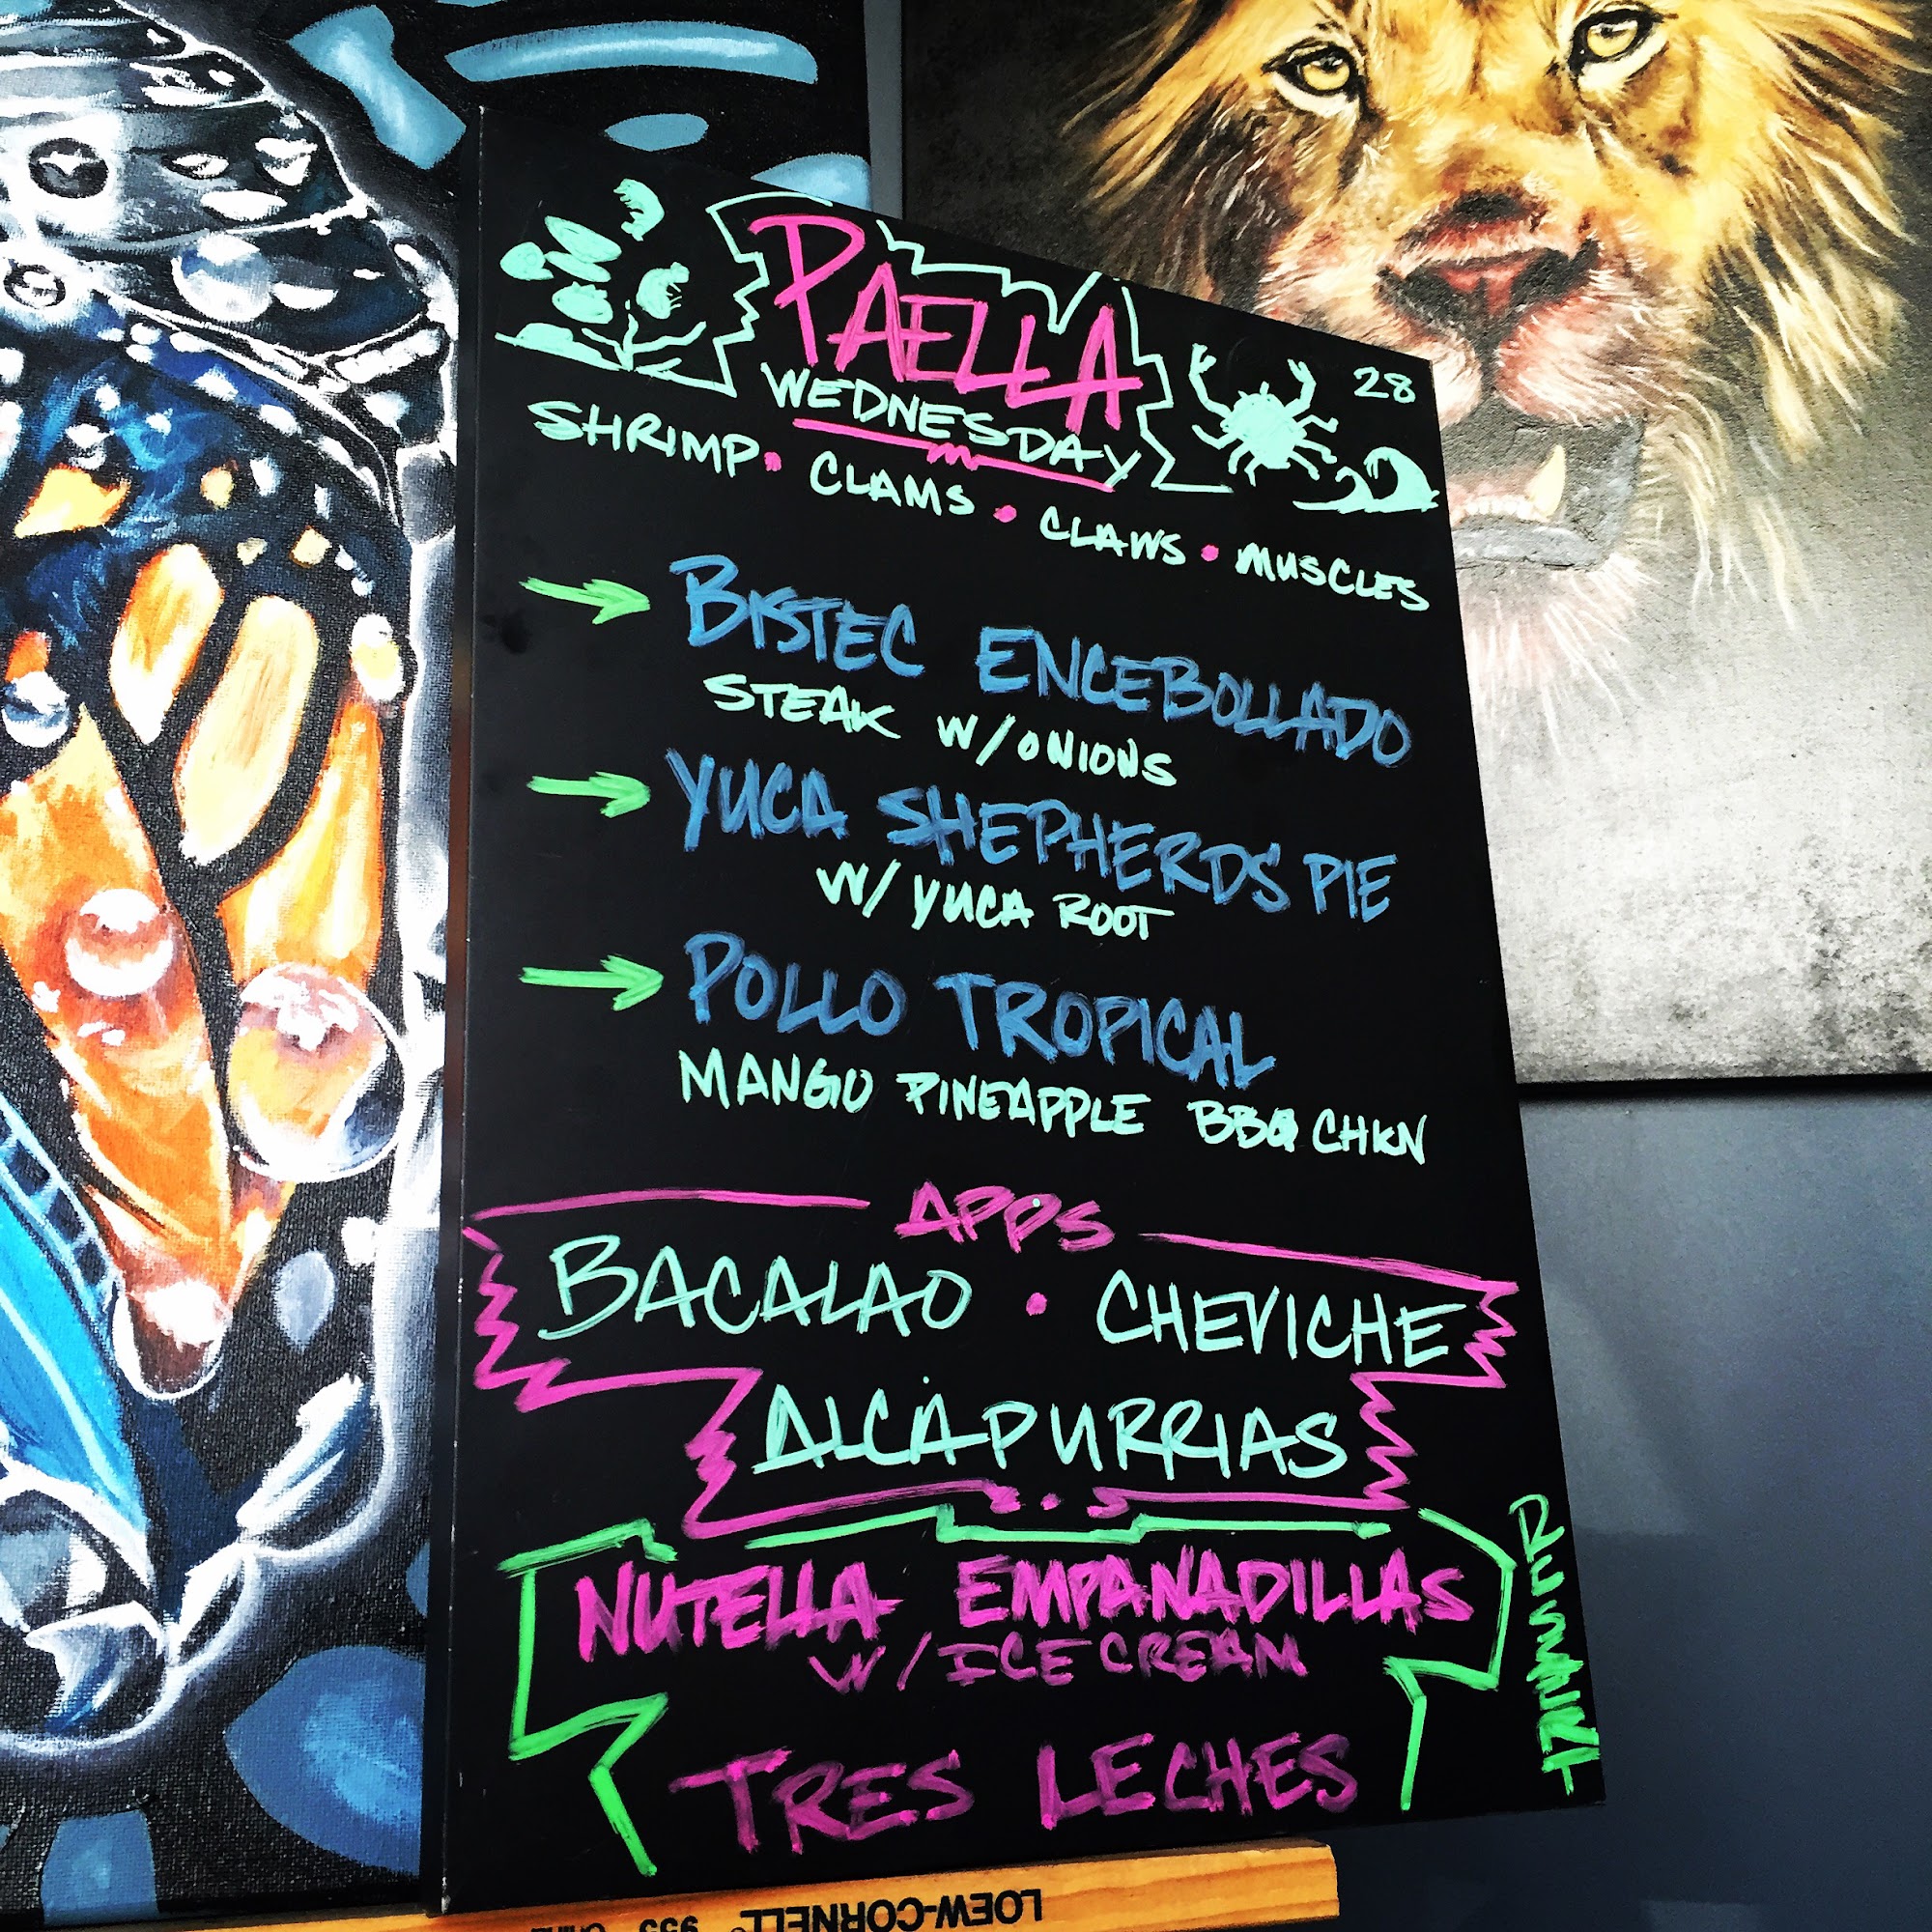 PAELLA
WEDNESDAY
28
SHRIMP • CLAMS • CLAWS • MUSCLES
BISTEC ENCEBOLLADO
STEAK W/ONIONS
YUCA SHEPHERDS PIE
W/ YUCA ROOT
POLLO TROPICAL
MANGO PINEAPPLE BBQ CHKN
APPS
BACALAO • CHEVICHE
ALCAPURRIAS
NUTELLA EMPANADILLAS
W/ ICE CREAM
TRES LECHES
LOEW-CORNELL